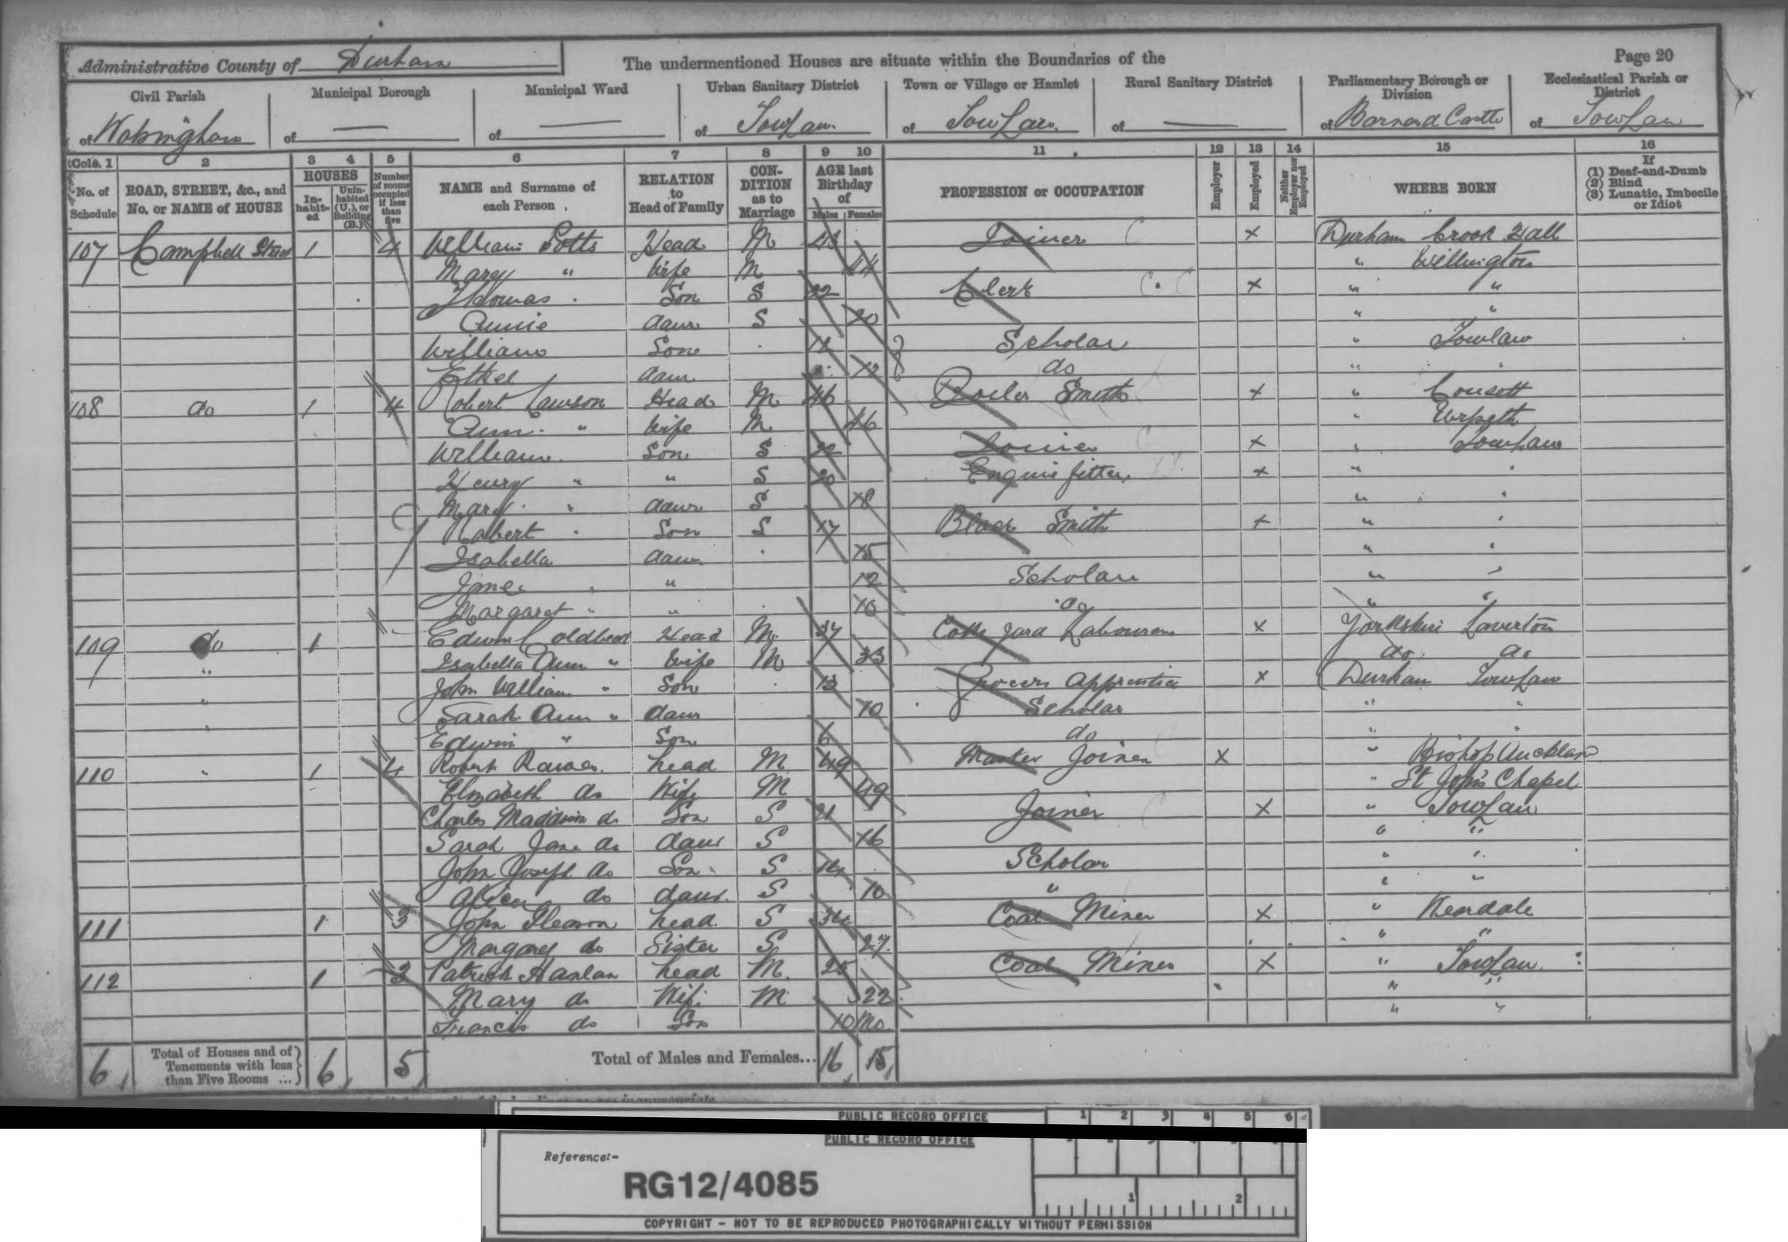 Administrative County of Durham
The undermentioned Houses are situate within the Boundaries of the
Page 20
Civil Parish
Municipal Borough
Municipal Ward
Urban Sanitary District
Town or Village or Hamlet
Rural Sanitary District
Parliamentary Borough or Division
Ecclesiastical Parish or District
of Wolsingham
of —
of —
of Tow Law
of Tow Law
of —
of Barnard Castle
of Tow Law
Cols. 1 2 3 4 5 6 7 8 9 10 11 12 13 14 15 16
No. of Schedule
ROAD, STREET, &c., and No. or NAME of HOUSE
HOUSES
Inhabited
Uninhabited (U.), or Building (B.)
Number of rooms occupied if less than five
NAME and Surname of each Person
RELATION to Head of Family
CONDITION as to Marriage
AGE last Birthday of
Males Females
PROFESSION or OCCUPATION
Employer
Employed
Neither Employer nor Employed
WHERE BORN
If
(1) Deaf-and-Dumb
(2) Blind
(3) Lunatic, Imbecile or Idiot
107 Campbell Street 1 4 William Potts Head M 43 Joiner x Durham Crook Hall
Mary " Wife M 44 " Willington
Thomas Son S 22 Clerk x " "
Annie daur S 20 " "
William Son Scholar " Towlaw
Ethel daur 12 do "
108 do 1 4 Robert Lawson Head M 46 Boiler Smith x " Consett
Ann " Wife M 46 Urpeth
William Son S 22 Joiner x Tow Law
Henry " " S 20 Engine fitter x "
Mary " daur S 18 "
Robert Son S 17 Black Smith x "
Isabella daur 15 "
Jane " 12 Scholar "
Margaret " " 10 do "
109 do 1 Edwin Head M 37 Coke Yard Labourer x Yorkshire Laverton
" Isabella Ann " Wife M 33 do do
" John William " Son 13 Grocers Apprentice x Durham Tow Law
" Sarah Ann " daur 10 Scholar "
" Edwin " Son 6 do "
110 " 1 4 Robert head M 49 Master Joiner x " Bishop Auckland
Elizabeth do Wife M 49 " St Johns Chapel
Charles Maddison do Son S 21 Joiner x " Tow Law
Sarah Jane do daur S 16 " "
John Joseph do Son S 14 Scholar " "
Alice do daur S 10 " " "
111 1 3 John head S 34 Coal Miner x "
Margaret do Sister S 27 " "
112 1 2 Patrick Hanlan head M 25 Coal Miner x " Tow Law
Mary do Wife M 22 " "
Francis do Son 10 Mo " "
6 Total of Houses and of Tenements with less than Five Rooms ... 6 5 Total of Males and Females... 16 15
PUBLIC RECORD OFFICE 1 2 3 4 5 6
PUBLIC RECORD OFFICE
Reference:-
RG12/4085
1 2
COPYRIGHT - NOT TO BE REPRODUCED PHOTOGRAPHICALLY WITHOUT PERMISSION